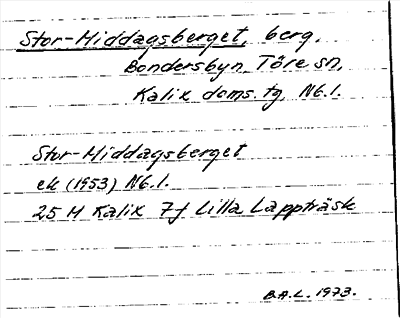 Stor-Middagsberget, berg,
Bondersbyn, Töre sn,
Kalix doms. tg, Nb.l.
Stor-Middagsberget
ek (1953) Nb.l.
25 M Kalix 7f Lilla Lappträsk
B.A.L. 1973.